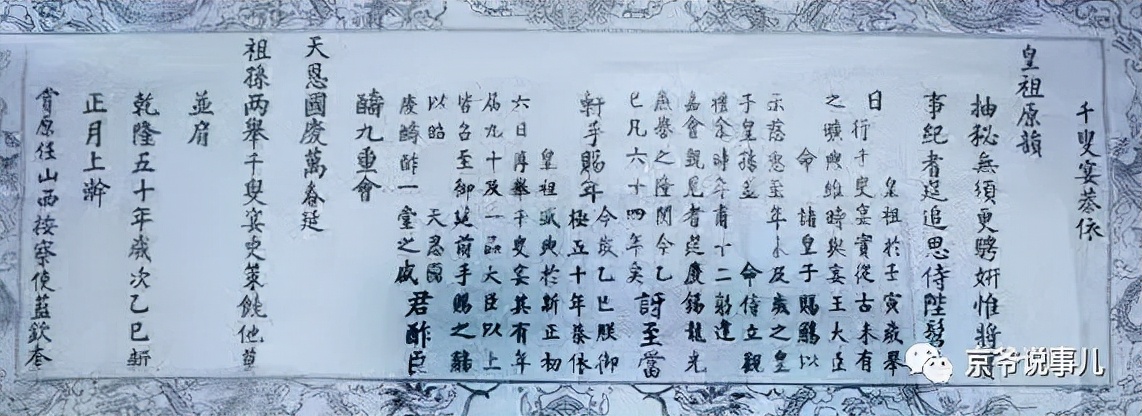 千叟宴恭依
皇祖原韻
抽秘無須更騁妍惟將
事紀耆筵追思侍陛髫
皇祖於壬寅歲舉
日 行千叟宴實從古未有
之曠典維時與宴王大臣
命諸皇子賜觴以
示慈惠至年未及歲之皇
子皇孫並 命侍立觀
禮余時年甫十二躬逢
嘉會親見耆筵廣錫龍光
燕譽之隆閱今乙
巳凡六十四年矣 訝至當
軒手賜年 今歲乙巳朕御
極五十年恭依
皇祖盛典於新正初
六日再舉千叟宴其有年
屆九十及一品大臣以上
皆召至御筵前手賜之觴
以昭 天恩國
慶醻酢一堂之盛 君酢臣
醻九重會
天恩國慶萬春延
祖孫兩舉千叟宴史策饒他莫
並肩
乾隆五十年歲次乙巳新
正月上澣
賞原任山西按察使藍欽奎
京爷说事儿